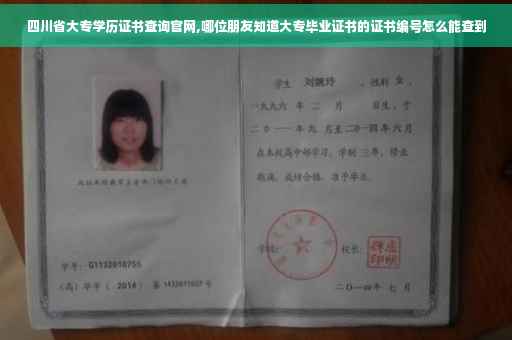 四川省大专学历证书查询官网,哪位朋友知道大专毕业证书的证书编号怎么能查到
学生 刘婉玲 ,性别 女 ,
一九九六 年 二 月 日生,于
二〇一一年九 月至二〇一四年六月
在本校高中部学习,学制 三年,修业
期满,成绩合格,准予毕业。
学号: G1132010755
学校: 校长:
(高)毕字 ( 2014 ) 第 号
二〇一四年 七 月